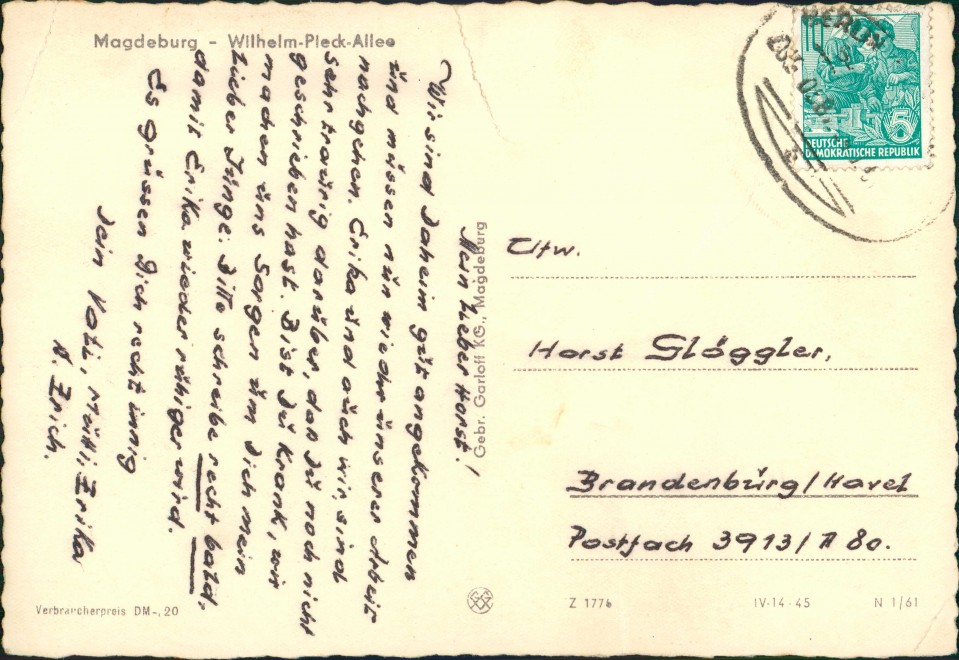 Magdeburg - Wilhelm-Pieck-Allee
Mein Lieber Horst!
Wir sind daheim gut angekommen
und müssen nun wieder unserer Arbeit
nachgehen. Erika und auch wir, sind
sehr traurig darüber, daß du noch nicht
geschrieben hast. Bist du krank, wir
machen uns Sorgen um dich mein
Lieber Junge. Bitte schreibe recht bald,
damit Erika wieder ruhiger wird.
Es grüssen dich recht innig
dein Vati, Mutti, Erika
u. Erich.
Gebr. Garloff KG., Magdeburg
BERLIN
10
5
DEUTSCHE
DEMOKRATISCHE REPUBLIK
Utw.
Horst Glöggler,
Brandenburg/Havel
Postfach 3913/A 80.
Verbraucherpreis DM -,20
Z 1776
IV-14-45
N 1/61